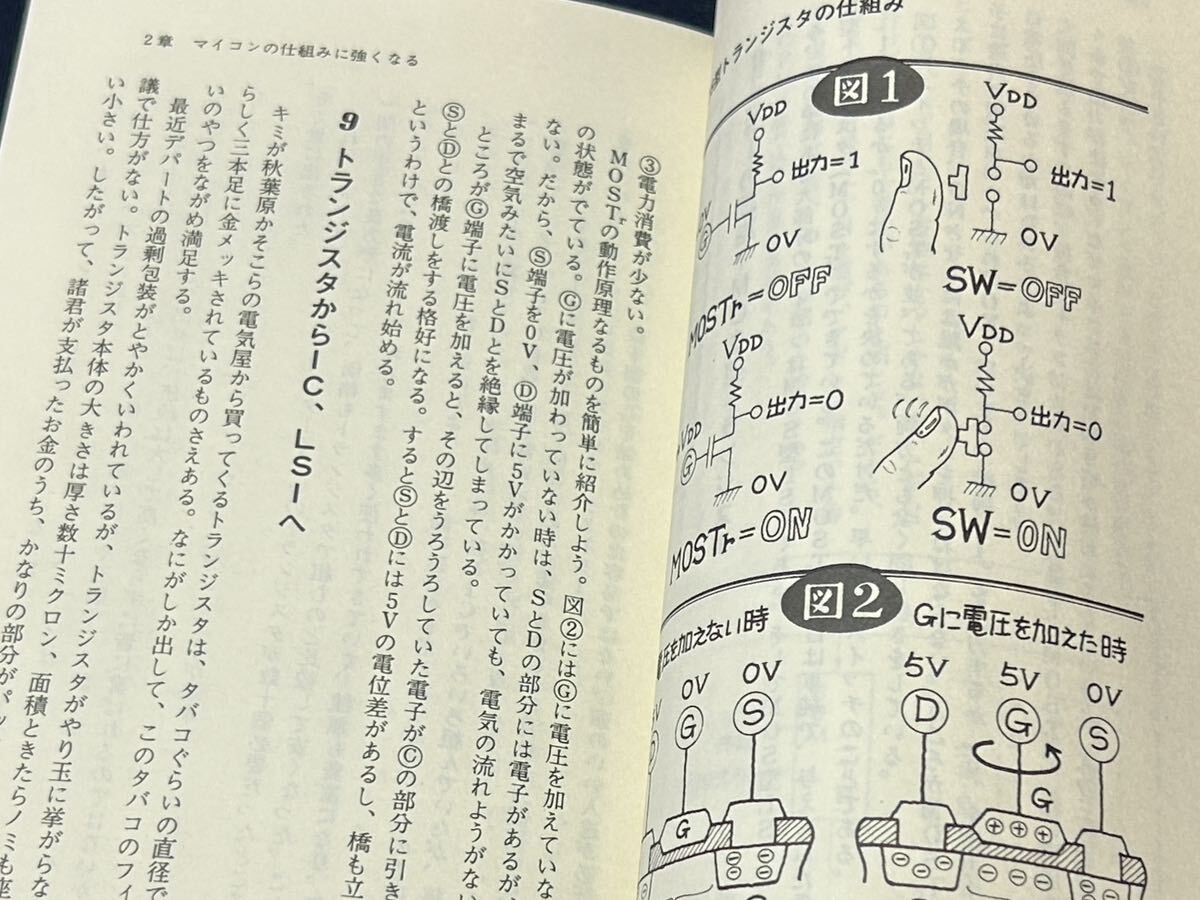 2章 マイコンの仕組みに強くなる
③電力消費が少ない。
MOSTrの動作原理なるものを簡単に紹介しよう。図②にはⒼに電圧を加えていな
の状態がでている。Ⓖに電圧が加わっていない時は、SとDの部分には電子があるが、
ない。だから、Ⓢ端子を0V、Ⓓ端子に5Vがかかっていても、電気の流れようがない
まるで空気みたいにSとDとを絶縁してしまっている。
ところがⒼ端子に電圧を加えると、その辺をうろうろしていた電子がⒸの部分に引き
ⓈとⒹとの橋渡しをする格好になる。するとⓈとⒹには5Vの電位差があるし、橋も立
というわけで、電流が流れ始める。
9 トランジスタからIC、LSIへ
キミが秋葉原かそこらの電気屋から買ってくるトランジスタは、タバコぐらいの直径で
らしく三本足に金メッキされているものさえある。なにがしか出して、このタバコのフィ
いのやつをながめ満足する。
最近デパートの過剰包装がとやかくいわれているが、トランジスタがやり玉に挙がらな
議で仕方がない。トランジスタ本体の大きさは厚さ数十ミクロン、面積ときたらノミも座
い小さい。したがって、諸君が支払ったお金のうち、かなりの部分がパッ
トランジスタの仕組み
図1
VDD
出力=1
0V
G
0V
MOSTr=OFF
VDD
出力=1
0V
SW=OFF
VDD
出力=0
VDD
G
0V
MOSTr=ON
VDD
出力=0
0V
SW=ON
図2
圧を加えない時
0V
0V
G
S
G
Gに電圧を加えた時
5V
5V
0V
D
G
S
G